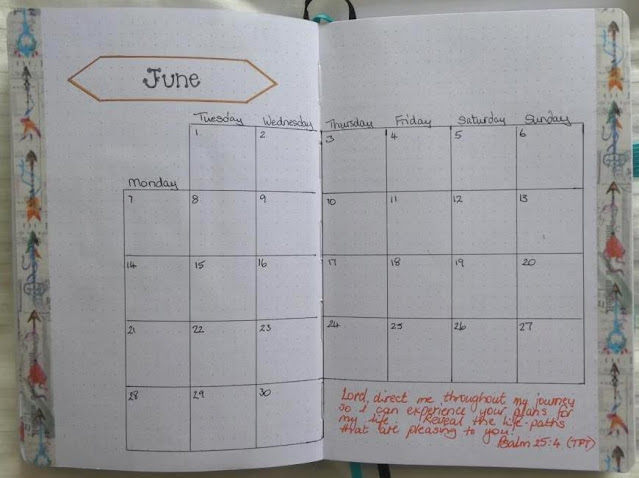 June
Tuesday Wednesday Thursday Friday Saturday Sunday
1 2 3 4 5 6
Monday
7 8 9 10 11 12 13
14 15 16 17 18 19 20
21 22 23 24 25 26 27
28 29 30
Lord, direct me throughout my journey
so I can experience your plans for
my life. Reveal the life-paths
that are pleasing to you.
Psalm 25:4 (TPT)